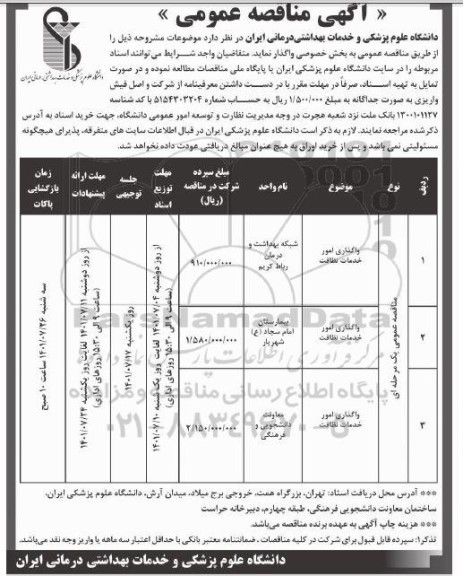 « آگهی مناقصه عمومی »
دانشگاه علوم پزشکی و خدمات بهداشتی درمانی ایران
دانشگاه علوم پزشکی و خدمات بهداشتی‌درمانی ایران در نظر دارد موضوعات مشروحه ذیل را
از طریق مناقصه عمومی به بخش خصوصی واگذار نماید. متقاضیان واجد شرایط می‌توانند اسناد
مربوطه را در سایت دانشگاه علوم پزشکی ایران یا پایگاه ملی مناقصات مطالعه نموده و در صورت
تمایل به تهیه اسناد، صرفاً در مهلت مقرر با در دست داشتن معرفینامه از شرکت و اصل فیش
واریزی به صورت جداگانه به مبلغ ۱/۵۰۰/۰۰۰ ریال به حساب شماره ۵۱۵۴۳۰۳۲۰۴ با کد شناسه
۱۳۰۰۱۰۱۱۲۷ بانک ملت نزد شعبه هجرت در وجه مدیریت نظارت و توسعه امور عمومی دانشگاه، جهت خرید اسناد به آدرس
ذکرشده مراجعه نمایند. لازم به ذکر است دانشگاه علوم پزشکی ایران در قبال اطلاعات سایت های متفرقه، پذیرای هیچگونه
مسئولیتی نمی باشد و پس از خرید اوراق به هیچ عنوان مبالغ دریافتی عودت داده نخواهد شد.
ردیف
نوع
موضوع
نام واحد
مبلغ سپرده شرکت در مناقصه (ریال)
مهلت توزیع اسناد
جلسه توجیهی
مهلت ارائه پیشنهادات
زمان بازگشایی پاکات
۱
مناقصه عمومی یک مرحله ای
واگذاری امور خدمات نظافت
شبکه بهداشت و درمان رباط کریم
۹۱۰/۰۰۰/۰۰۰
از روز دوشنبه ۱۴۰۱/۰۷/۰۴ لغایت روز یک‌شنبه ۱۴۰۱/۰۷/۱۰ (ساعت ۹ الی ۱۵:۳۰ روزهای اداری)
روز یکشنبه ۱۴۰۱/۰۷/۱۷
از روز دوشنبه ۱۴۰۱/۰۷/۱۱ لغایت روز یکشنبه ۱۴۰۱/۰۷/۲۴ (ساعت ۹ الی ۱۵:۳۰ روزهای اداری)
سه شنبه ۱۴۰۱/۰۷/۲۶ ساعت ۱۰ صبح
۲
واگذاری امور خدمات نظافت
بیمارستان امام سجاد (ع) شهریار
۱/۵۸۰/۰۰۰/۰۰۰
۳
واگذاری امور خدمات نظافت
معاونت دانشجویی و فرهنگی
۲/۱۵۰/۰۰۰/۰۰۰
*** آدرس محل دریافت اسناد: تهران، بزرگراه همت، خروجی برج میلاد، میدان آرش، دانشگاه علوم پزشکی ایران،
ساختمان معاونت دانشجویی فرهنگی، طبقه چهارم، دبیرخانه حراست
*** هزینه چاپ آگهی به عهده برنده مناقصه می‌باشد.
تذکر۱: سپرده قابل قبول برای شرکت در کلیه مناقصات، ضمانتنامه معتبر بانکی با حداقل اعتبار سه ماهه یا واریز وجه نقد می‌باشد.
دانشگاه علوم پزشکی و خدمات بهداشتی درمانی ایران